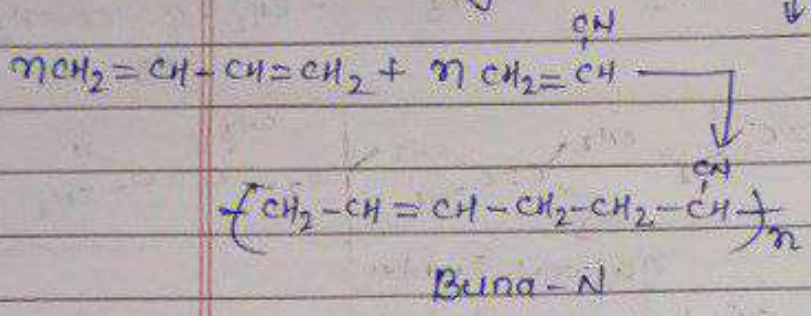 CN
nCH₂=CH-CH=CH₂ + n CH₂=CH
CN
(CH₂-CH=CH-CH₂-CH₂-CH)n
Buna-N